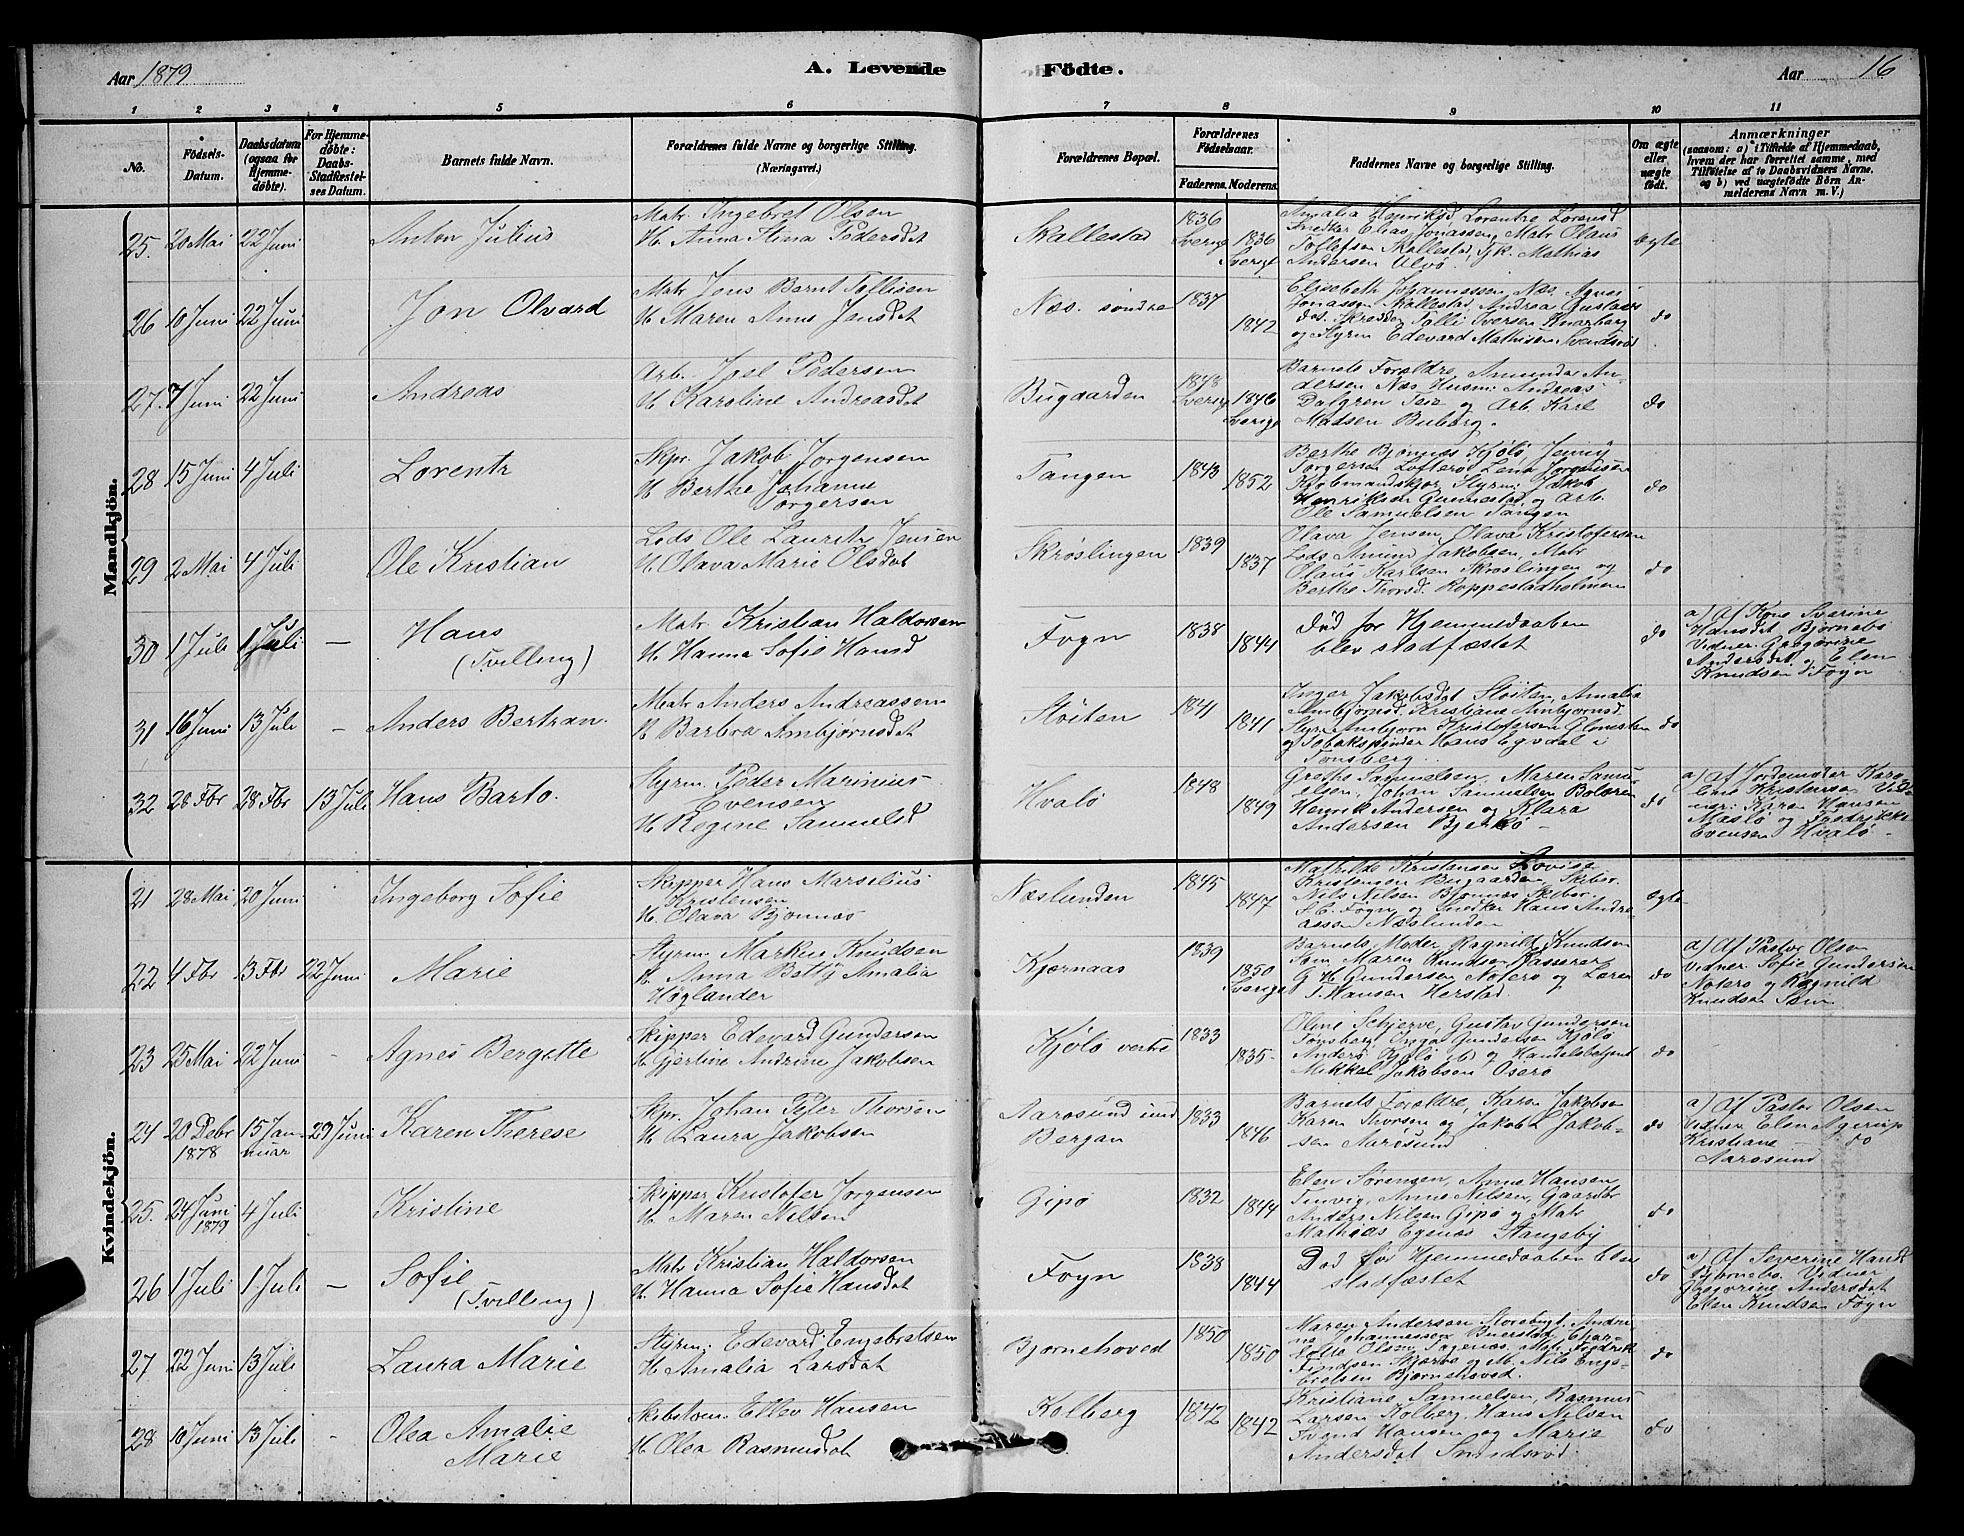 Aar 1879
A. Levende Födte.
Aar 16
1 2 3 4 5 6 7 8 9 10 11
No.
Födsels-Datum.
Daabsdatum (ogsaa for Hjemmedöbte).
For Hjemmedöbte: Daabs-Stadfæstelses Datum.
Barnets fulde Navn.
Forældrenes fulde Navne og borgerlige Stilling.
(Næringsvei.)
Forældrenes Bopæl.
Forældrenes Födselsaar.
Faderens. Moderens.
Faddernes Navne og borgerlige Stilling.
Om ægte eller uægte födt.
Anmærkninger
(saasom: a) i Tilfælde af Hjemmedaab, hvem der har forrettet samme, med Tilföielse af to Daabsvidners Navne, og b) ved uægtefödte Börn Anmelderens Navn m. V.)
Mandkjön.
25. 20 Mai 22 Juni Anton Julius
Matr. Ingebret Olsen
H. Anna Stina Pedersdat
Skallestad 1836 Sverige 1836 Sverige
Amalia Henriksd, Lorentre Lorensd
Snedker Elias Jonassen, Matr Olaus
Tollefsen Skallestad, Tjk. Mathias
Andersen Ulvö.
ægte
26 10 Juni 22 Juni Jon Olvard
Matr Jens Bernt Tollisen
H. Maren Anne Jensdat
Næs. söndre 1837 1842
Elisebeth Johannessen Næs, Agnes
Jonassen Skallestad, Andrea Gustavs
dat. Skredder Tolli Iversen Knarberg
og Styrm Edevard Mathisen Svendsrød
do
27. 7 Juni 22 Juni Andreas
Arb. Joel Pedersen
H. Karoline Andreasdat
Bugaarden 1848 Sverige 1846 Sverige
Barnets Forældre, Amunda An-
dersen Næs, Husm: Andreas
Dalgren Teie og Arb. Karl
Madsen Buberg.
do
28 15 Juni 4 Juli Lorentz
Skpr. Jakob Jorgensen
H. Berthe Johanne
Torgersen
Tangen 1843 1852
Berthe Bjönnæs Kjölö, Jenny
Torgersen Lofterö, Lena Jorgensen
Kjöbmandskjær, Styrm: Jakob
Henriksen Gunnestad og Arb.
Ole Samuelsen Tangen
do
29 2 Mai 4 Juli Ole Kristian
Lods Ole Lauritz Jensen
H. Olava Marie Olsdat
Skröslingen 1839 1837
Olava Jensen, Olava Kristofersen
Lods Amund Jakobsen, Matr
Olaus Karlsen Skröslingen og
Berthe Thorsd. Roppestadholmen
do
30 1 Juli 1 Juli — Hans
(Tvilling)
Matr Kristian Haldorsen
H. Hanna Sofie Hansd
Föyn 1838 1844
Död før Hjemmedaaben
blev stadfæstet
do
a) Af Kone Severine
Hansdat Bjørnebö
Vidner: Gregorine
Andersdat og Elen
Knudsen Föyn
31 16 Juni 13 Juli — Anders Bertran.
Matr Anders Andreassen
H Barbra Ambjørnsdat
Stöiten 1841 1841
Inger Jakobsdat Stöiten, Amalia
Ambjörnsd. Kristiane Ambjornsd.
Styr. Ambjorn Kristofersen Holmesten
og Tobakspinder Hans Egvaal i
Tønsberg.
do
32 28 Fbr 28 Fbr 13 Juli Hans Barto.
Styrm. Peder Marinius
Evensen
H Regine Samuelsd
Hvalö 1848 1849
Grethe Samuelsen, Maren Samu-
elsen, Johan Samuelsen Bolæren
Henrik Andersen og Klara
Andersen Bjerkö –
do
a) Af Jordemoder Karo-
line Kristensen Vid-
ner: Karen Hansen
Maslö og Fredrikke
Evensen Hvalö –
Kvindekjön.
21 28 Mai 20 Juni Ingeborg Sofie
Skipper Hans Marselius
Kristensen
H. Olava Bjönnæs
Næslunden 1845 1847
Mathilde Kristensen Lovise
Kristensen Bugaarden, Skibsr.
Nils Nilsen Bjönnæs, Skibsr
S. C. Foyn og Snedker Hans Andre-
assen Næslunden
ægte
22 4 Fbr 13 Fbr 22 Juni Marie
Styrm. Markus Knudsen
H. Anna Betty Amalia
Höglander
Kjærnaas 1839 1850 Sverige
Barnets Moder, Ragnild Knudsen
Sem, Maren Knudsen, Kasserer
G. H. Gundersen Noterö og Loren
T. Hansen Herstad.
do
a) Af Pastor Olsen
Vidner Sofie Gundersen
Noterö og Ragnild
Knudsen Sem
23 25 Mai 22 Juni - Agnes Bergette
Skipper Edevard Gundersen
H. Gjertine Andrine Jakobsen
Kjölö vestre 1833 1835-
Oline Schjerve, Gustav Gundersen
Tønsberg, Inga Gundersen Kjölö
Anders Kjölö ibd og Handelsbetjent
Mikkel Jakobsen Oserö
do
24 20 Debr 1878 15 Januar 29 Juni Karen Therese
Skpr. Johan Peter Thorsen
H Laura Jakobsen
Aarosund ind
Bergan 1833 1846
Barnets Forældre, Karen Jakobsen
Karen Thorsen og Jakob L Jakob-
sen Aarösund
do
a) Af Pastor Olsen
Vidner Elen Agerup
Kristiane — do
Aarosund
25. 24 Juni 1879 4 Juli Kristine
Skipper Kristofer Jorgensen
H. Maren Nilsen
Gipö 1832 1844
Elen Sörensen, Anne Hansen
Tenvig, Anne Nilsen, Gaardbr
Anders Nilsen Gipö og Matr
Mathias Egenæs Stangeby
do
26 1 Juli 1 Juli — Sofie
(Tvilling)
Matr Kristian Haldorsen
H. Hanna Sofie Hansdat
Föyn 1838 1844
Död før Hjemmedaaben blev
stadfæstet
do
a) Af Severine Hansd
Bjørnebö. Vidner
Gregorine Andersdat
Elen Knudsen Föyn
27 22 Juni 13 Juli Laura Marie
Styrm: Edevard Engebretsen
H. Amalia Larsdat
Bjørnehoved 1850 1850
Maren Andersen Storebygt. Andre-
ne Johannessen Buerstad, Char-
lotte Olsen, Fagenæs, Matr Fredrik
Findsen Skjærbo og M. Nils Enge-
bretsen Bjørnehoved.
do
28 10 Juni 13 Juli - Olea Amalie
Marie
Skibstöm. Ellev Hansen
H. Olea Rasmusdat
Kolberg 1842 1842
Kristiane Samuelsen, Rasmus
Larsen Kolberg, Hans Nilsen
Svend Hansen og Marie
Andersdat Svendsröd.
do